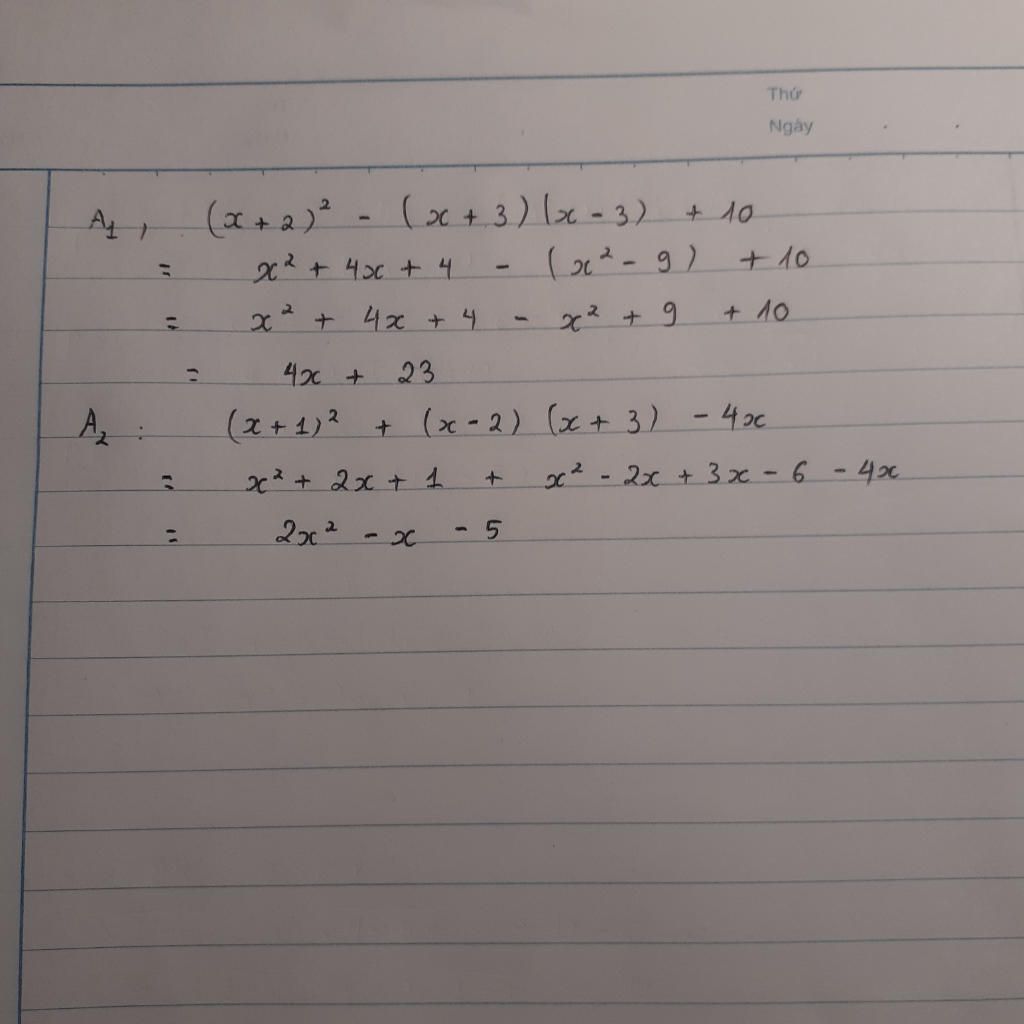 Thứ
Ngày . .
A₁, (x + 2)² - (x + 3)(x - 3) + 10
= x² + 4x + 4 - (x² - 9) + 10
= x² + 4x + 4 - x² + 9 + 10
= 4x + 23
A₂ : (x + 1)² + (x - 2) (x + 3) - 4x
= x² + 2x + 1 + x² - 2x + 3x - 6 - 4x
= 2x² - x - 5